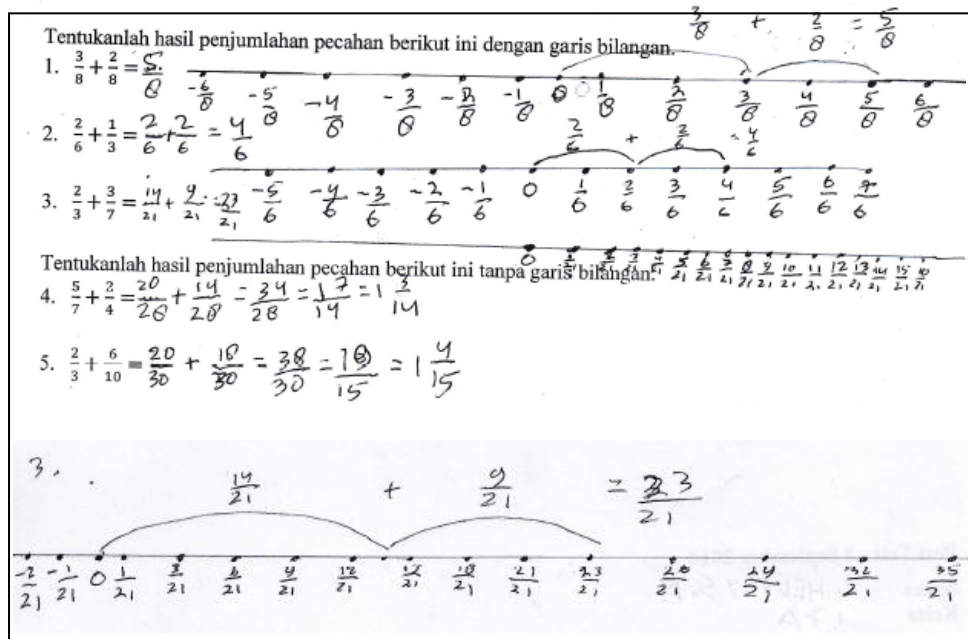 3/8 + 2/8 = 5/8
Tentukanlah hasil penjumlahan pecahan berikut ini dengan garis bilangan.
1. 3/8 + 2/8 = 5/8
-6/8 -5/8 -4/8 -3/8 -2/8 -1/8 0 1/8 2/8 3/8 4/8 5/8 6/8
2. 2/6 + 1/3 = 2/6 + 2/6 = 4/6
2/6 + 2/6 = 4/6
-5/6 -4/6 -3/6 -2/6 -1/6 0 1/6 2/6 3/6 4/6 5/6 6/6 7/6
3. 2/3 + 3/7 = 14/21 + 9/21 = 23/21
0 5/21 6/21 8/21 9/21 10/21 11/21 12/21 13/21 14/21 15/21
Tentukanlah hasil penjumlahan pecahan berikut ini tanpa garis bilangan.
4. 5/7 + 2/4 = 20/28 + 14/28 = 34/28 = 17/14 = 1 3/14
5. 2/3 + 6/10 = 20/30 + 18/30 = 38/30 = 19/15 = 1 4/15
3.
14/21 + 9/21 = 23/21
-2/21 -1/21 0 1/21 3/21 6/21 9/21 12/21 18/21 21/21 23/21 26/21 29/21 32/21 35/21